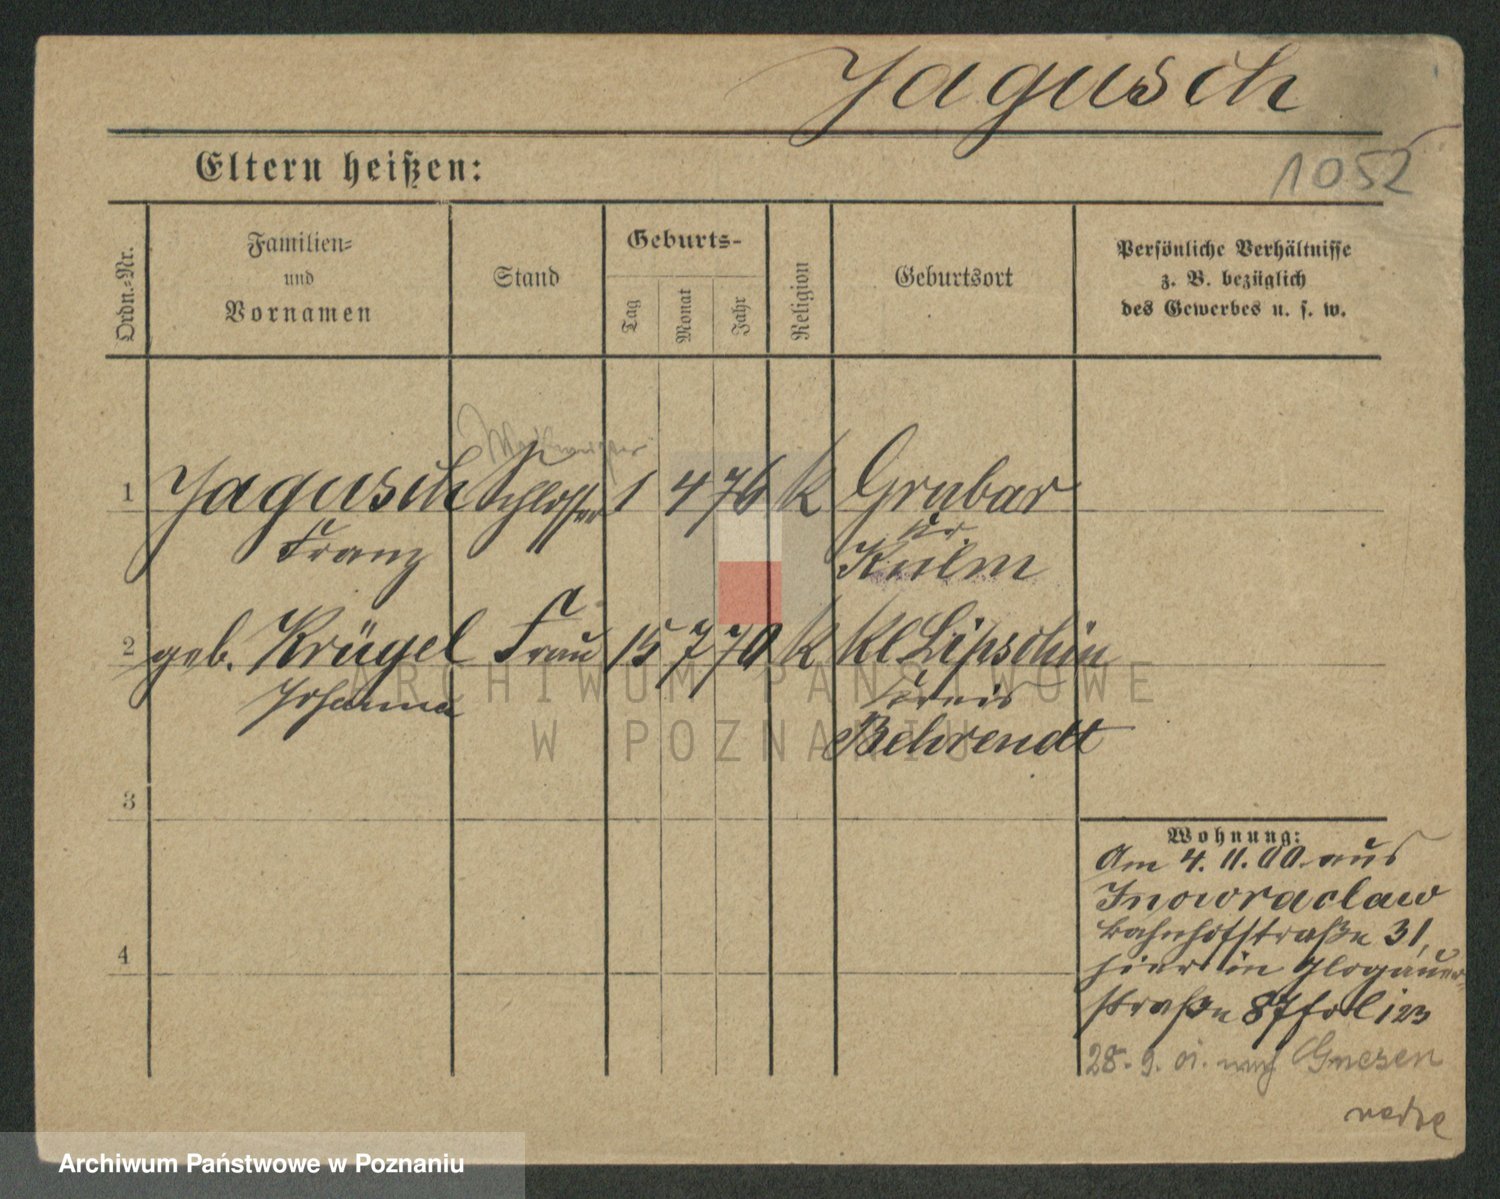 Jagusch
Eltern heißen:
1052
Ordn.-Nr.
Familien-
und
Vornamen
Stand
Geburts-
Tag
Monat
Jahr
Religion
Geburtsort
Persönliche Verhältnisse
z. B. bezüglich
des Gewerbes u. s. w.
1 Jagusch Schlosser 1 4 76 K Grubar
Franz
Kulm
2 geb. Krügel Frau 15 7 70 K Kl Lipschin
Johanna Kreis
Behrendt
3
4
Wohnung:
Am 4. 11. 00 aus
Inowraclaw
Bahnhofstraße 31,
hier in Glogauer-
straße 87
28. 9. 01. nach Gnesen
ARCHIWUM PAŃSTWOWE
W POZNANIU
Archiwum Państwowe w Poznaniu